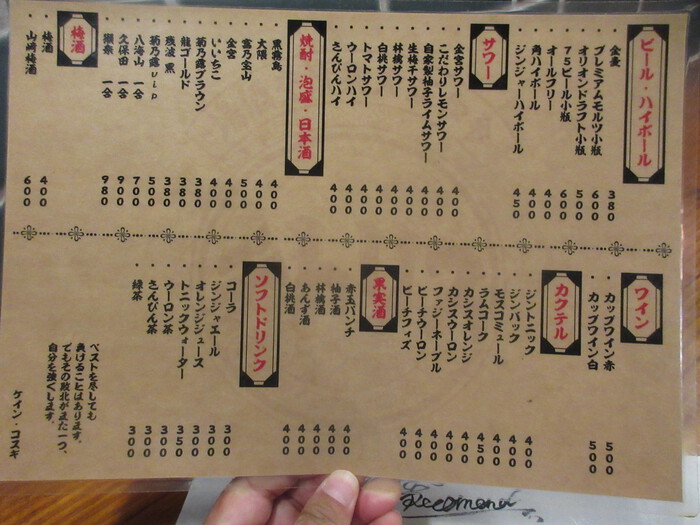 ビール・ハイボール
金麦 380
プレミアムモルツ小瓶 600
オリオンドラフト小瓶 500
75ビール小瓶 600
オールフリー 400
角ハイボール 400
ジンジャーハイボール 450
サワー
金宮サワー 400
こだわりレモンサワー 400
自家製柚子ライムサワー 400
生梅干サワー 400
林檎サワー 400
白桃サワー 400
トマトサワー 400
ウーロンハイ 400
さんぴんハイ 400
焼酎・泡盛・日本酒
黒霧島 400
大隅 400
富乃宝山 500
金宮 400
いいちこ 400
菊乃露ブラウン 380
龍ゴールド 380
残波 黒 380
菊乃露vip 500
八海山 一合 700
久保田 一合 900
獺祭 一合 980
梅酒
梅酒 400
山崎梅酒 600
ワイン
カップワイン赤 500
カップワイン白 500
カクテル
ジントニック 400
ジンバック 400
モスコミュール 400
ラムコーク 450
カシスオレンジ 400
カシスウーロン 400
ファジーネーブル 400
ピーチウーロン 400
ピーチフィズ 400
果実酒
赤玉パンチ 400
柚子酒 400
林檎酒 400
あんず酒 400
白桃酒 400
ソフトドリンク
コーラ 300
ジンジャエール 300
オレンジジュース 300
トニックウォーター 350
ウーロン茶 300
さんぴん茶 300
緑茶 300
ベストを尽しても
負けることはあります。
でもその敗北がまた一つ、
自分を強くします。
ケイン・コスギ